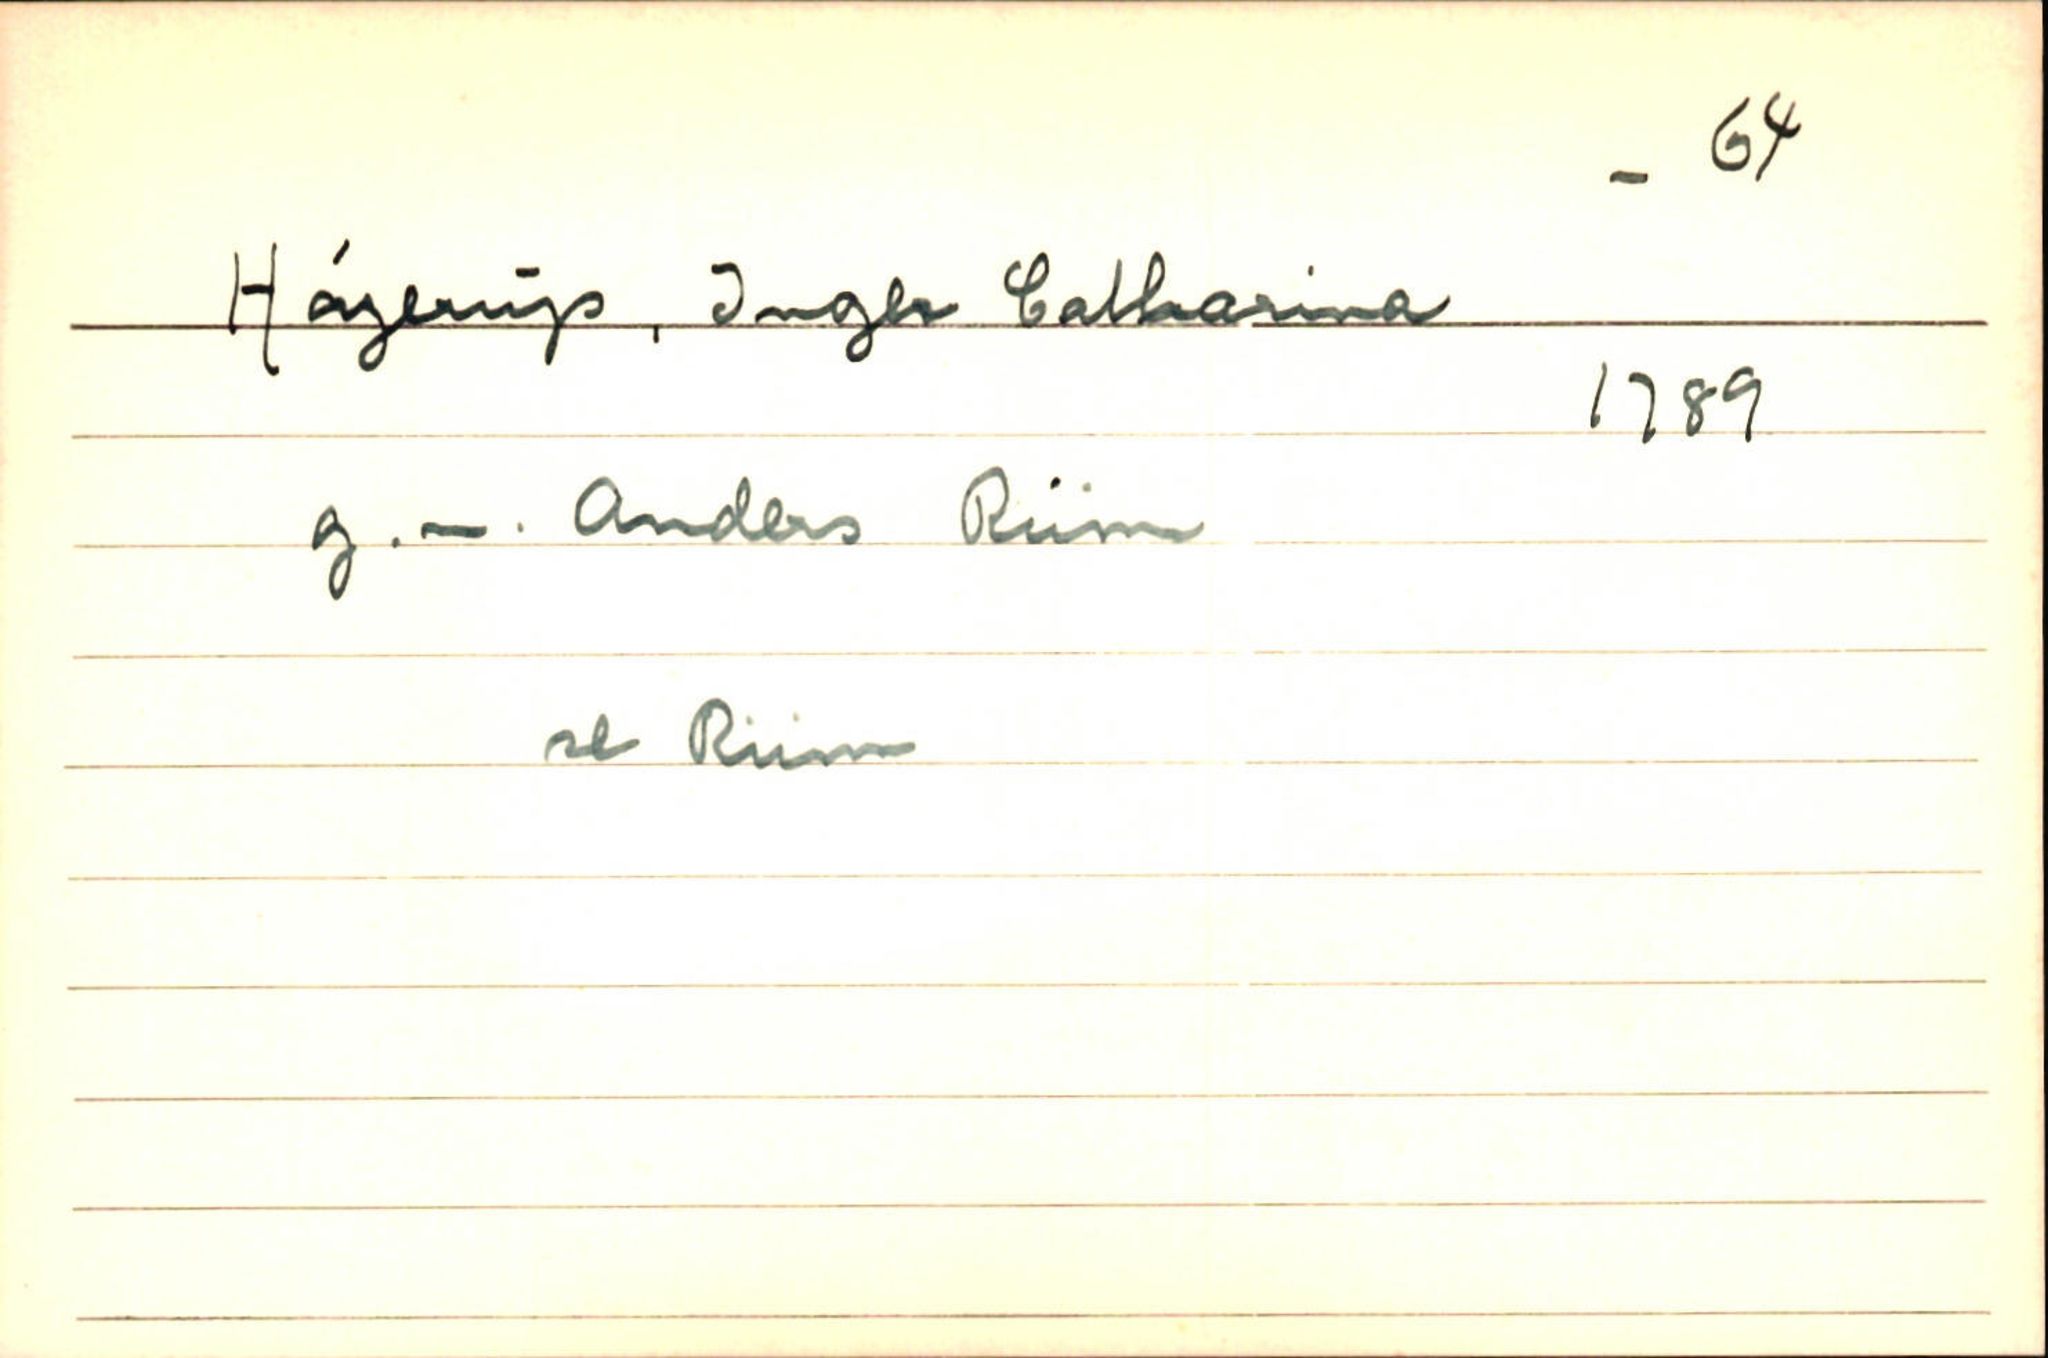 - 64
Hágerūp, Inger Catharina
1789
g. m. Anders Riim
se Riim